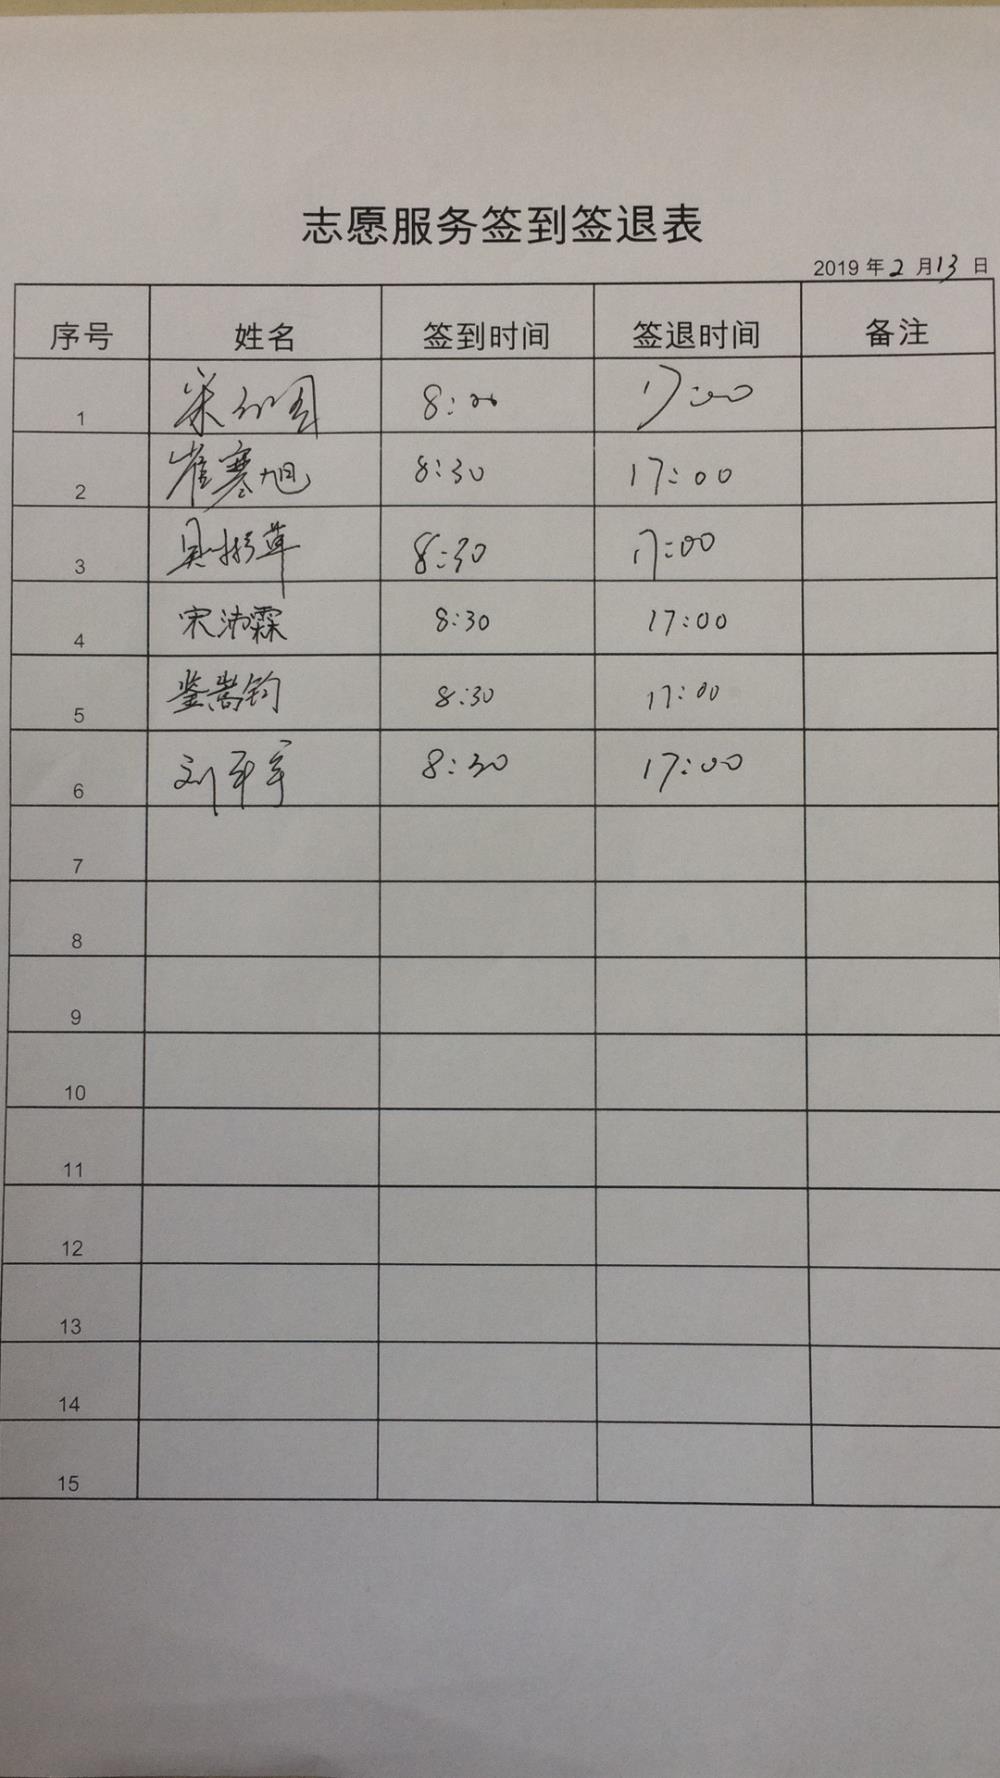 志愿服务签到签退表
2019 年 2 月 13 日
序号 姓名 签到时间 签退时间 备注
1 8: 17:00
2 崔寒旭 8:30 17:00
3 8:30 17:00
4 宋沛霖 8:30 17:00
5 鉴嵩钧 8:30 17:00
6 刘平军 8:30 17:00
7
8
9
10
11
12
13
14
15